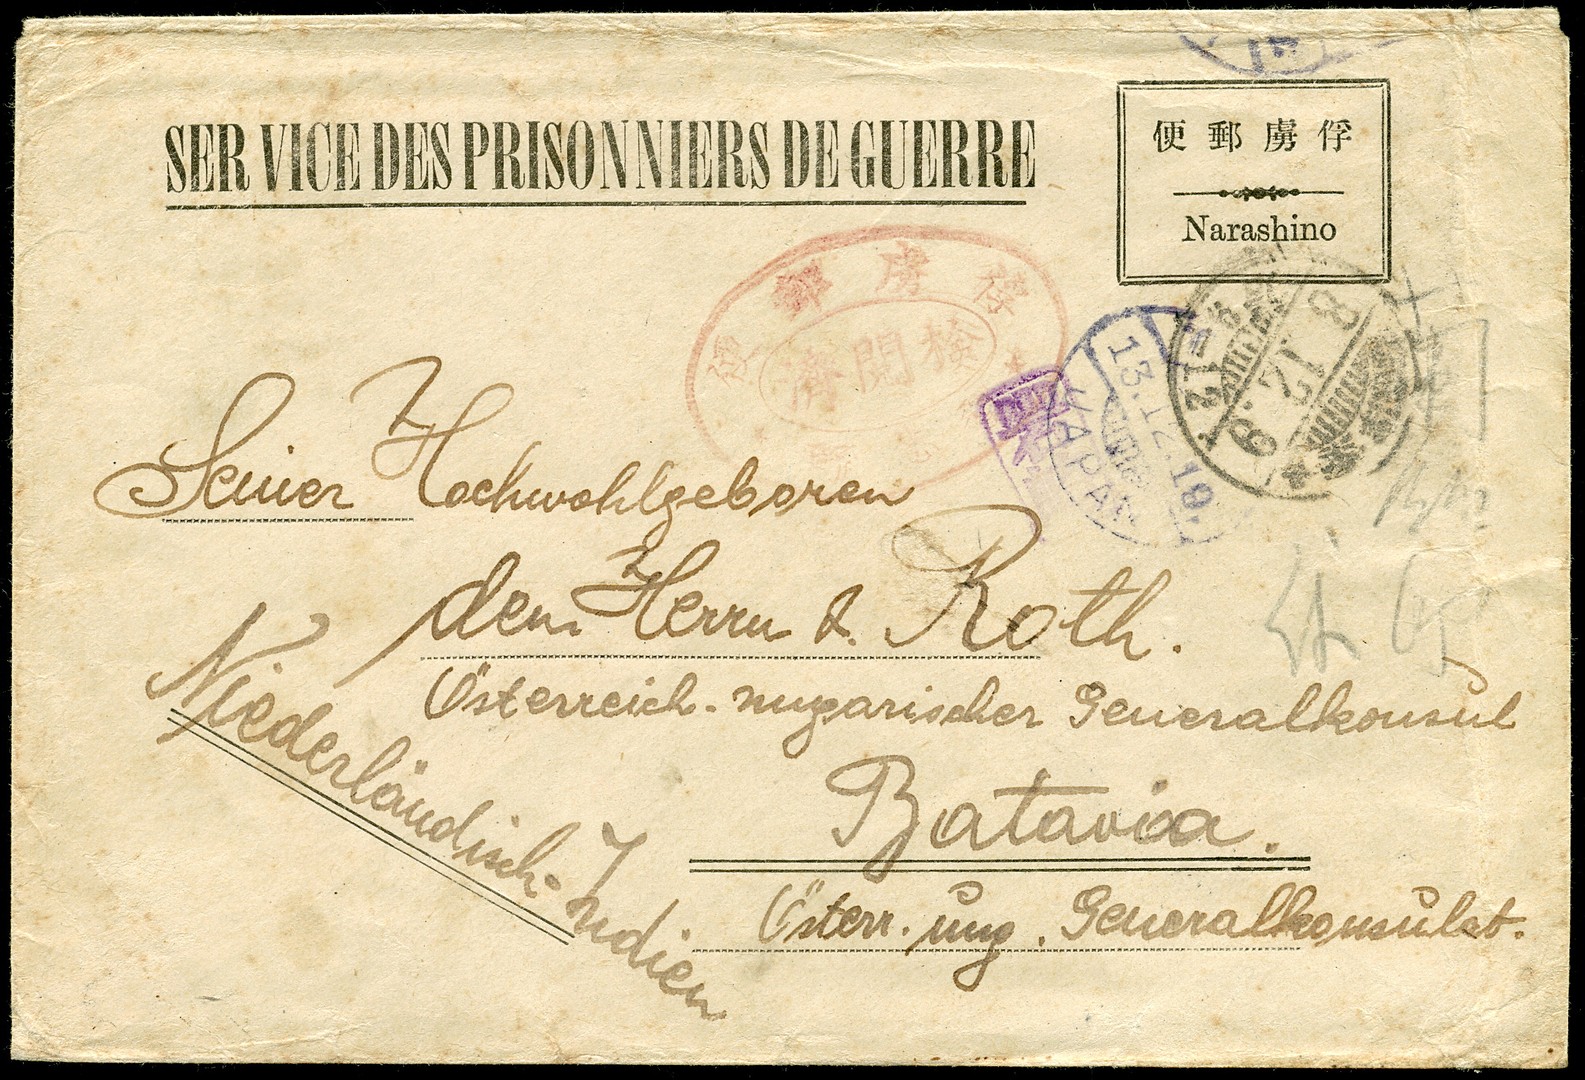 SERVICE DES PRISONNIERS DE GUERRE
便郵虜俘
Narashino
便郵虜俘
済閲検
8.12.9
13.12.19.
JAPAN
Seiner Hochwohlgeboren
dem Herrn D. Roth.
Österreich-ungarischer Generalkonsul
Batavia.
Österr. ung. Generalkonsulat.
Niederländisch-Indien